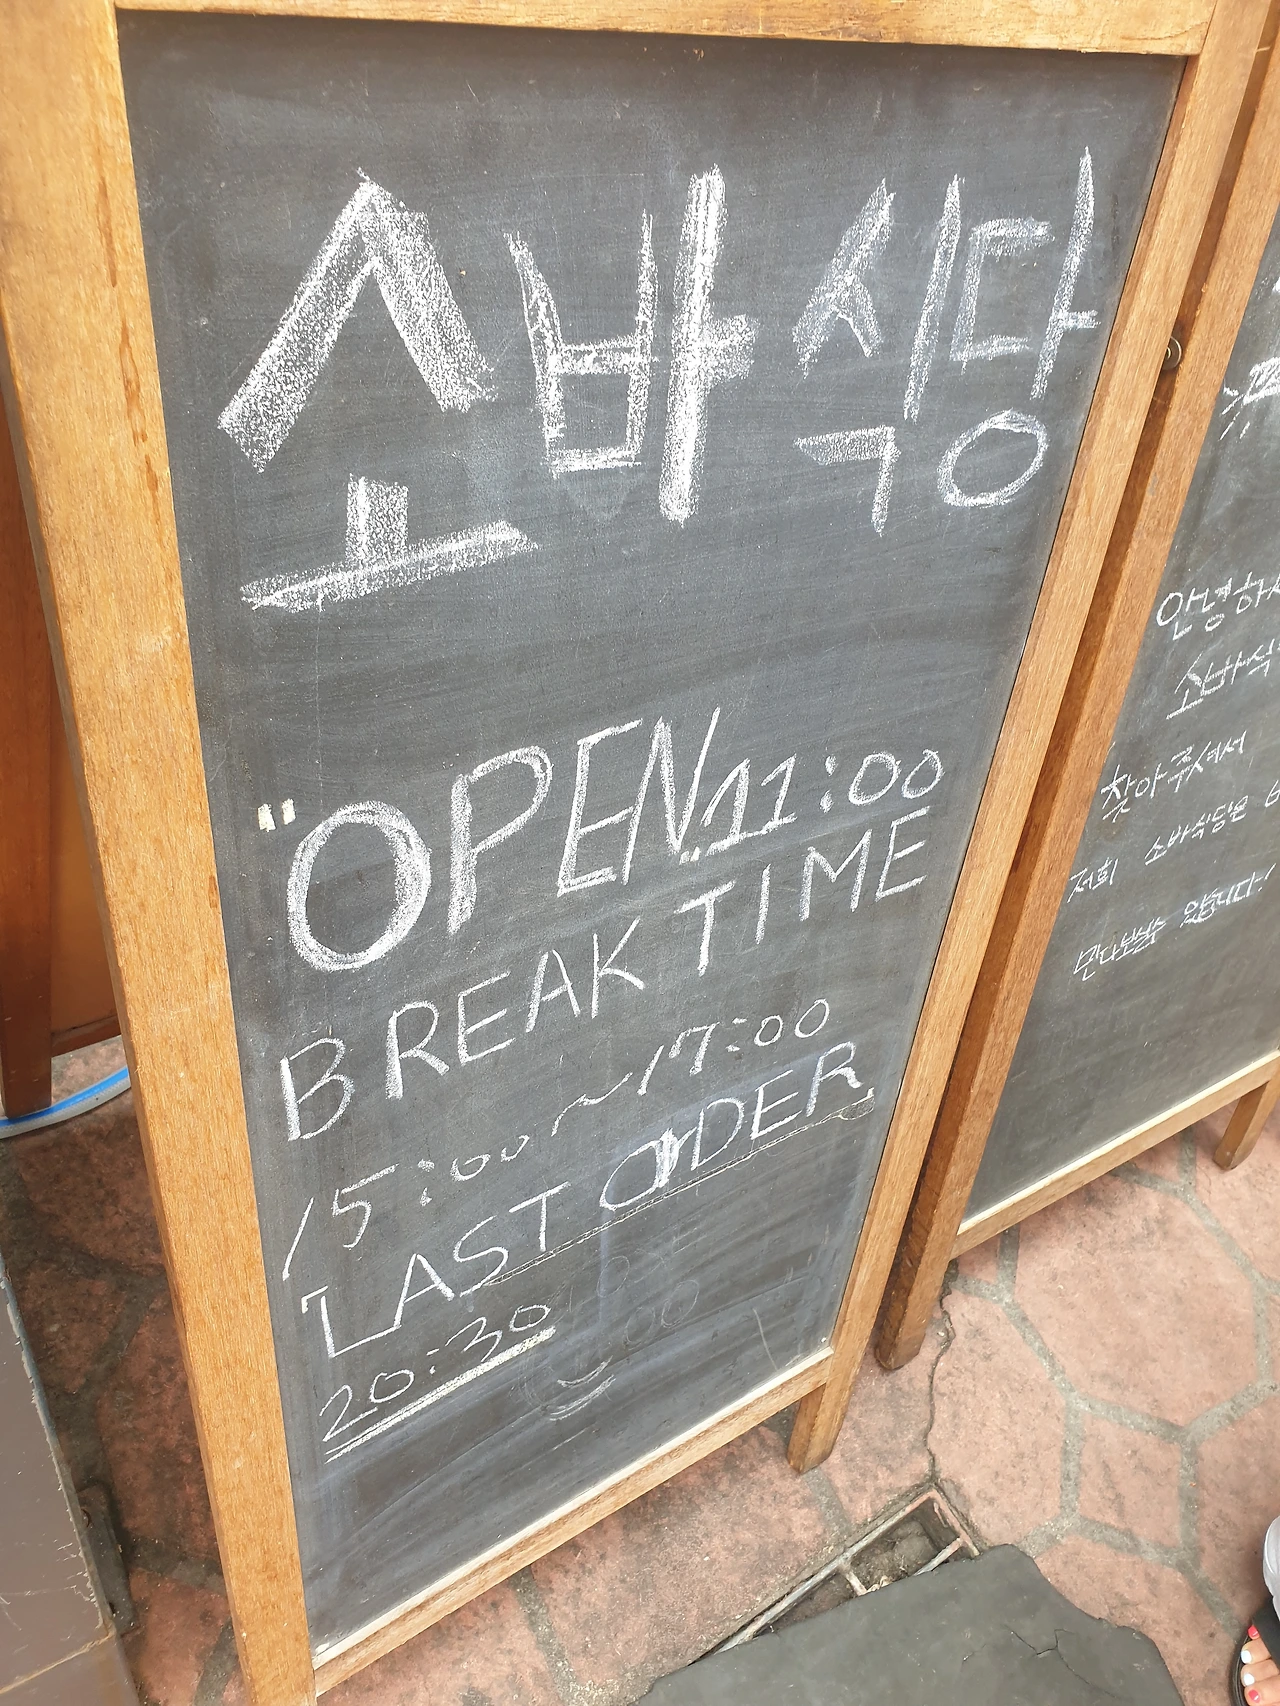 소바식당
"OPEN" 11:00
BREAK TIME
15:00~17:00
LAST OrDER
20:30
안녕하세
소바식
찾아주셔서
저희 소바식당은
만나보실수 있습니다!